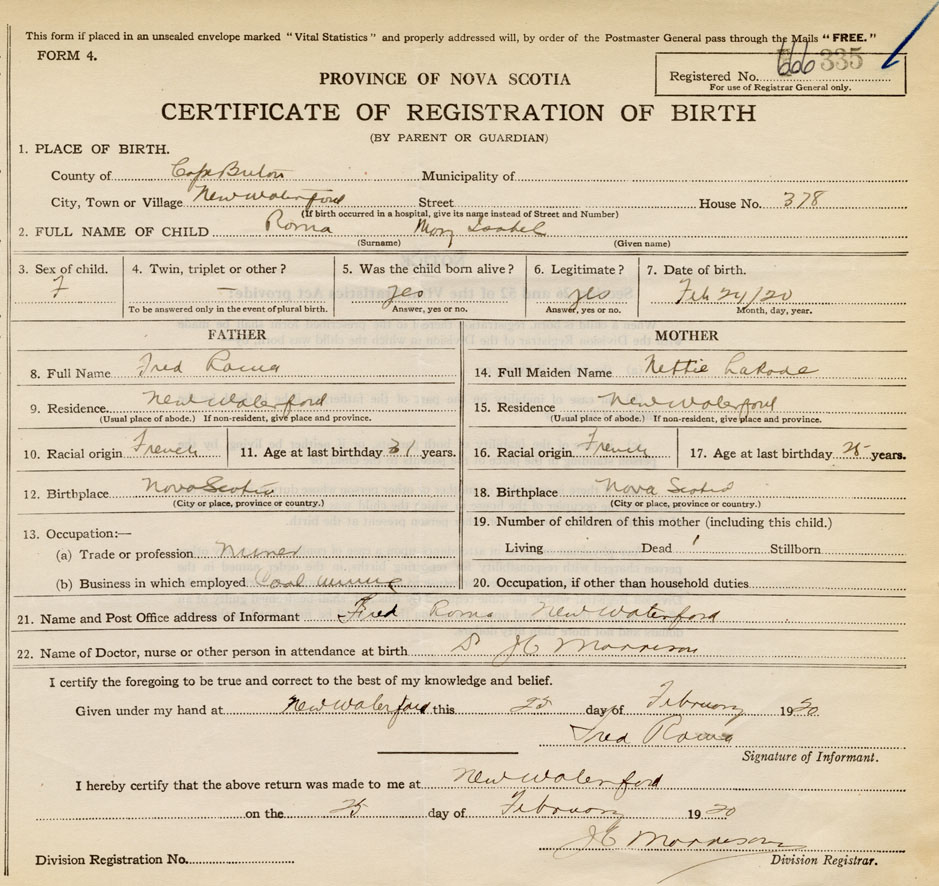 This form if placed in an unsealed envelope marked "Vital Statistics" and properly addressed will, by order of the Postmaster General pass through the Mails "FREE."
FORM 4.
Registered No. 666 335
For use of Registrar General only.
PROVINCE OF NOVA SCOTIA
CERTIFICATE OF REGISTRATION OF BIRTH
(BY PARENT OR GUARDIAN)
1. PLACE OF BIRTH.
County of Cape Breton Municipality of
City, Town or Village New Waterford Street House No. 378
(If birth occurred in a hospital, give its name instead of Street and Number)
2. FULL NAME OF CHILD Roma Mary Isabel
(Surname) (Given name)
3. Sex of child. 4. Twin, triplet or other? 5. Was the child born alive? 6. Legitimate? 7. Date of birth.
F — yes yes Feb 24/20
To be answered only in the event of plural birth. Answer, yes or no. Answer, yes or no. Month, day, year.
FATHER MOTHER
8. Full Name Fred Roma 14. Full Maiden Name Nettie LaRade
9. Residence New Waterford 15. Residence New Waterford
(Usual place of abode.) If non-resident, give place and province. (Usual place of abode.) If non-resident, give place and province.
10. Racial origin French 11. Age at last birthday 31 years. 16. Racial origin French 17. Age at last birthday 25 years.
12. Birthplace Nova Scotia 18. Birthplace Nova Scotia
(City or place, province or country.) (City or place, province or country.)
13. Occupation:— 19. Number of children of this mother (including this child.)
(a) Trade or profession Miner Living Dead 1 Stillborn
(b) Business in which employed Coal mining 20. Occupation, if other than household duties
21. Name and Post Office address of Informant Fred Roma New Waterford
22. Name of Doctor, nurse or other person in attendance at birth Morrison
I certify the foregoing to be true and correct to the best of my knowledge and belief.
Given under my hand at New Waterford this 25 day of February 1920
Fred Roma
Signature of Informant.
I hereby certify that the above return was made to me at New Waterford
on the 25 day of February 1920
Morrison
Division Registration No. Division Registrar.